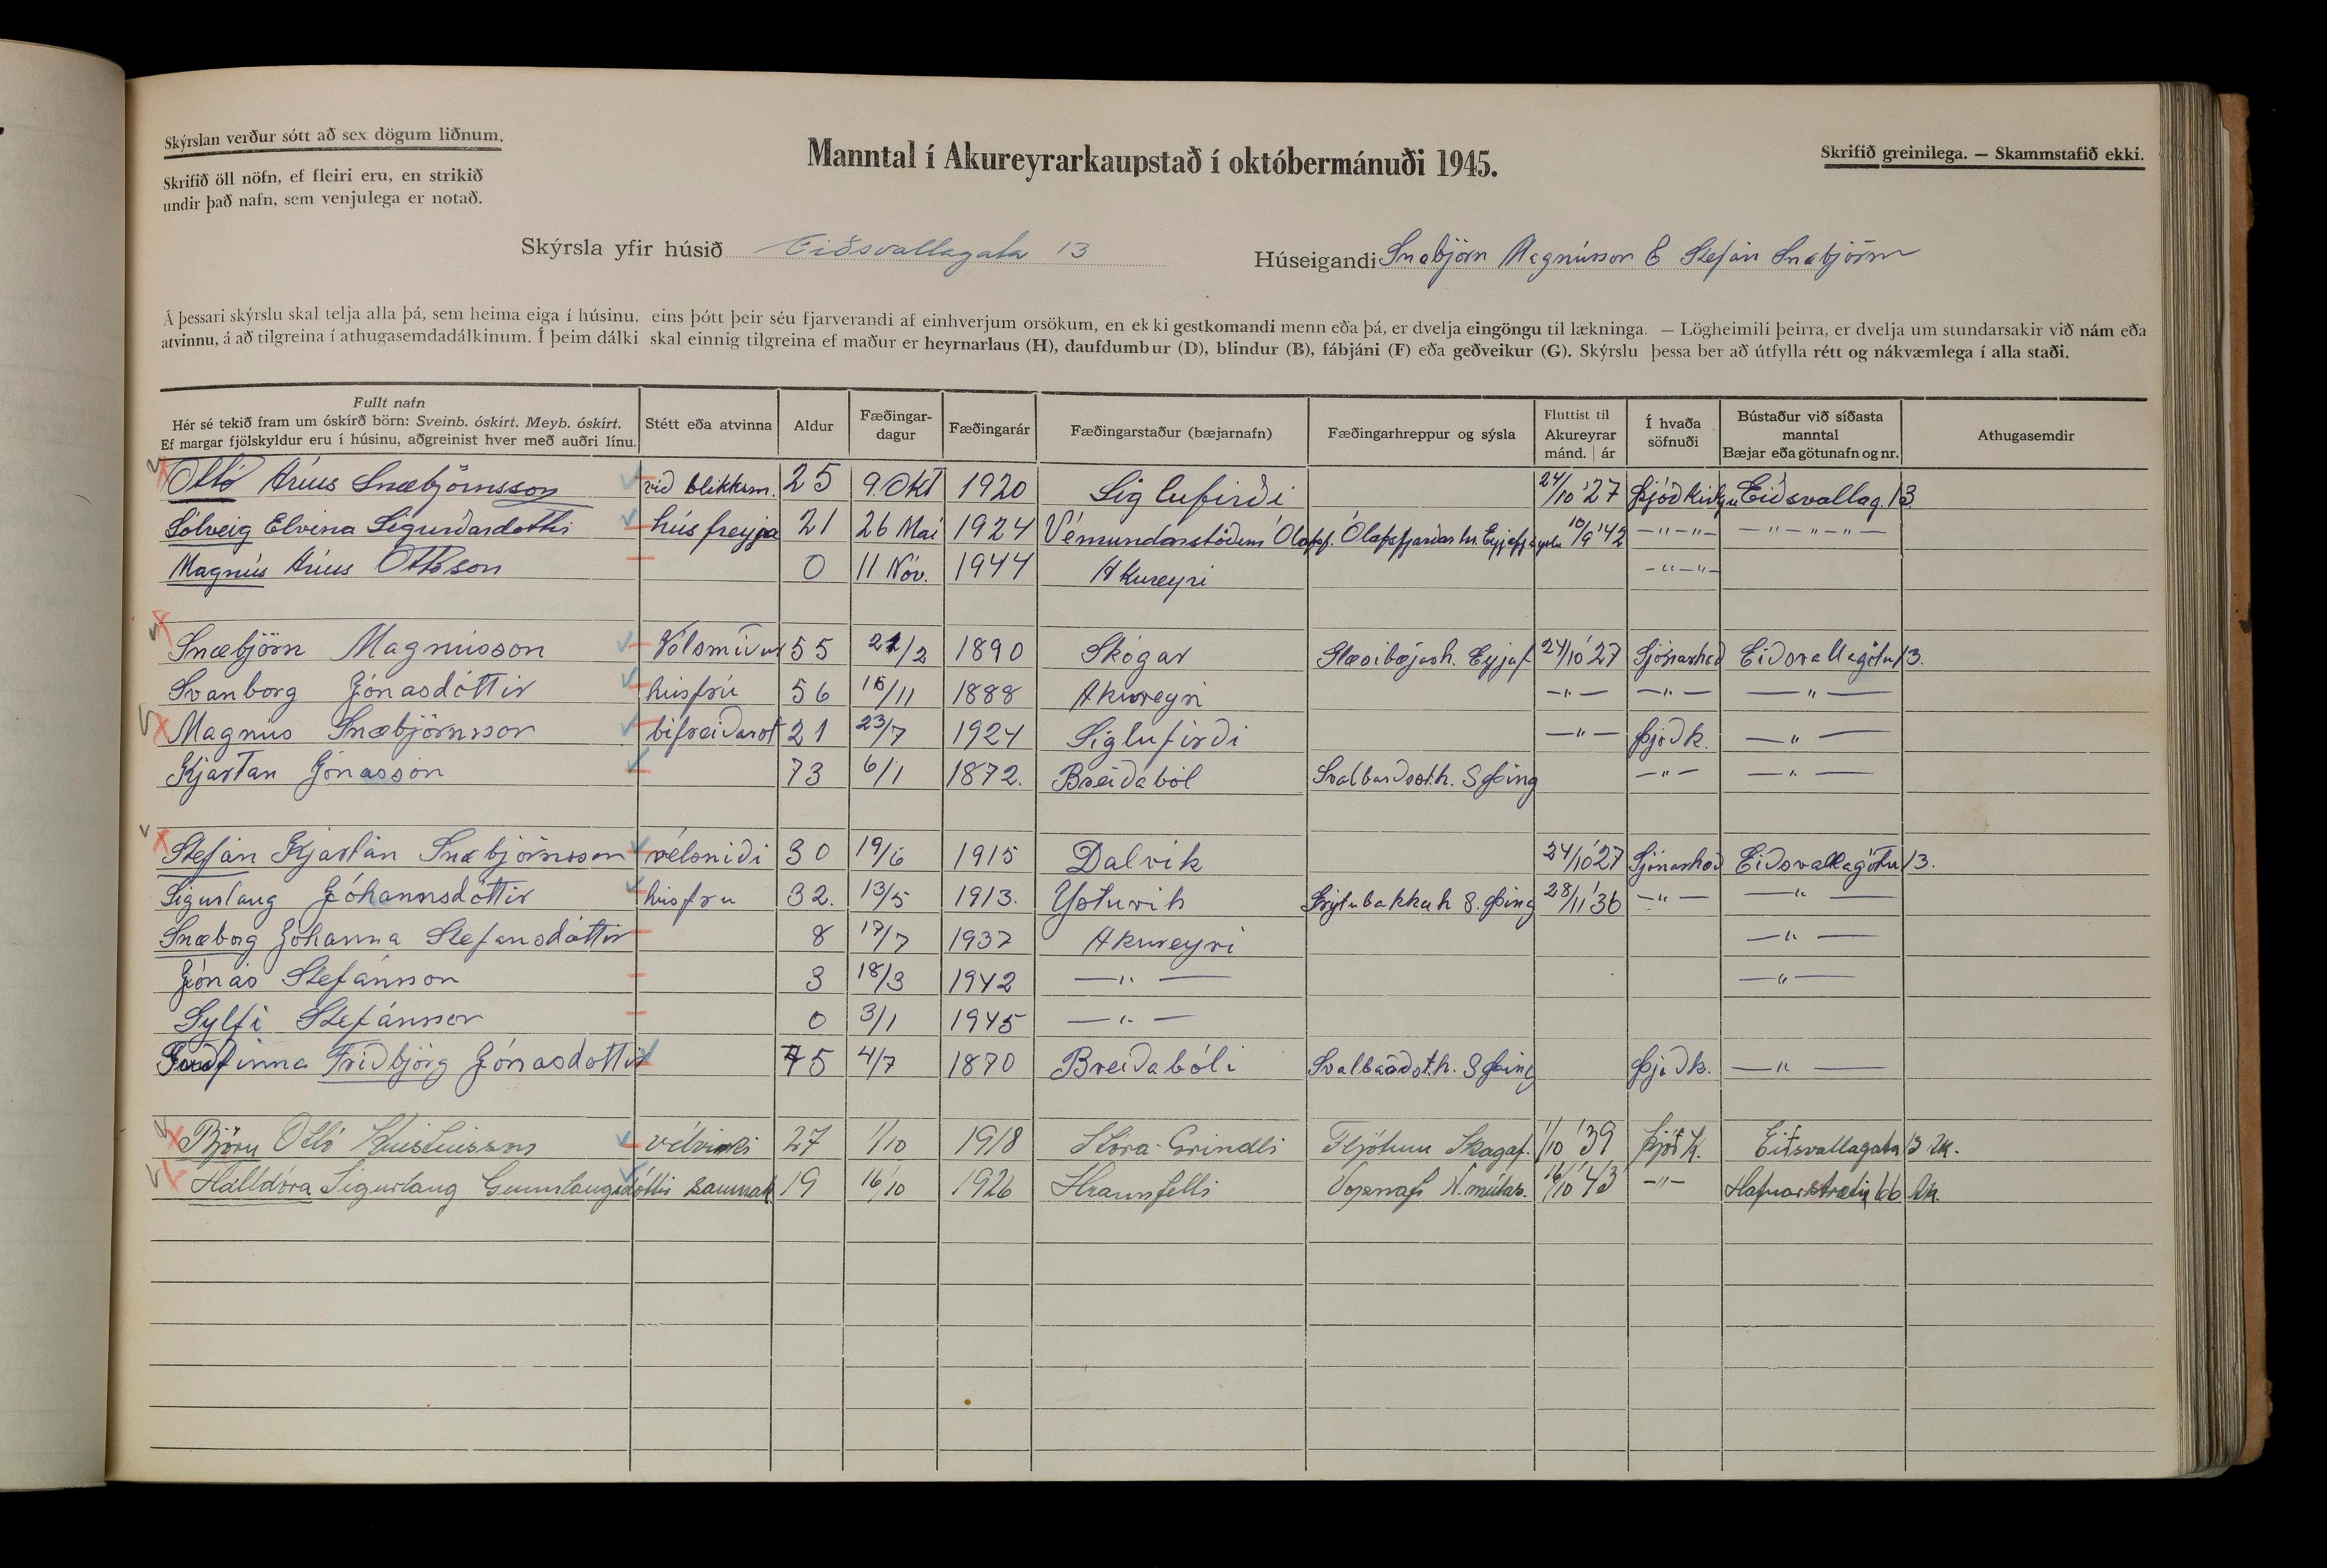 Skýrslan verður sótt að sex dögum liðnum.
Skrifið öll nöfn, ef fleiri eru, en strikið
undir það nafn, sem venjulega er notað.
Manntal í Akureyrarkaupstað í októbermánuði 1945.
Skrifið greinilega. — Skammstafið ekki.
Skýrsla yfir húsið Eiðsvallagata 13
Húseigandi Snæbjörn Magnússon & Stefán Snæbjörn
Á þessari skýrslu skal telja alla þá, sem heima eiga í húsinu, eins þótt þeir séu fjarverandi af einhverjum orsökum, en ekki gestkomandi menn eða þá, er dvelja eingöngu til lækninga. — Lögheimili þeirra, er dvelja um stundarsakir við nám eða
atvinnu, á að tilgreina í athugasemdadálkinum. Í þeim dálki skal einnig tilgreina ef maður er heyrnarlaus (H), daufdumbur (D), blindur (B), fábjáni (F) eða geðveikur (G). Skýrslu þessa ber að útfylla rétt og nákvæmlega í alla staði.
Fullt nafn
Hér sé tekið fram um óskírð börn: Sveinb. óskírt. Meyb. óskírt.
Ef margar fjölskyldur eru í húsinu, aðgreinist hver með auðri línu.
Stétt eða atvinna
Aldur
Fæðingar-
dagur
Fæðingarár
Fæðingarstaður (bæjarnafn)
Fæðingarhreppur og sýsla
Fluttist til
Akureyrar
mánd. | ár
Í hvaða
söfnuði
Bústaður við síðasta
manntal
Bæjar eða götunafn og nr.
Athugasemdir
Ottó Árius Snæbjörnsson við blikksm. 25 9. Okt 1920 Siglufirði 24/10 '27 Þjóðkirkju Eiðsvallag. 13
Sólveig Elvina Sigurðardottir húsfreyja 21 26 Mai 1924 Vémundarstöðum Ólafsf. Ólafsfjarðar hr. Eyjafj.sýslu 10/9 '42 -"-"- -"-"-"-
Magnús Árius Ottóson 0 11 Nóv. 1944 Akureyri -"-"-
Snæbjörn Magnússon 55 21/2 1890 Skógar Glæsibæjarh. Eyjaf. 24/10 '27 Sjónarhæð Eiðsvallagötu 13.
Svanborg Jónasdóttir húsfrú 56 15/11 1888 Akureyri -"- -"- -"-
Magnús Snæbjörnsson bifreiðarst 21 23/7 1924 Siglufirði -"- Þjóðk. -"-
Kjartan Jónasson 73 6/1 1872. Breiðaból Svalbarðsst.h. S Þing -"- -"-
Stefán Kjartan Snæbjörnsson vélsmiði 30 19/6 1915 Dalvik 24/10 '27 Sjónarhæð Eiðsvallagötu 13.
Sigurlaug Jóhannsdóttir húsfrú 32. 13/5 1913. Ystuvik Grýtubakkah S. Þing 28/11 '36 -"- -"-
Snæborg Jóhanna Stefansdóttir 8 17/7 1937 Akureyri -"-
Jónas Stefánsson 3 18/3 1942 -"- -"-
Gylfi Stefánsson 0 3/1 1945 -"-
Guðfinna Friðbjörg Jónasdottir 75 4/7 1870 Breiðabóli Svalbarðst.h. S Þing Þjóðk. -"-
Björn Ottó Kristinsson vélvirki 27 1/10 1918 Stóra-Grindli Fljótum Skagaf. 1/10 '39 Þjóðk. Eiðsvallagata 13 Ak.
Halldóra Sigurlaug Gunnlaugsdóttir saumak. 19 16/10 1926 Hraunfelli Vopnaf. N.múlas. 16/10 '43 -"- Hafnarstræti 66 Ak.